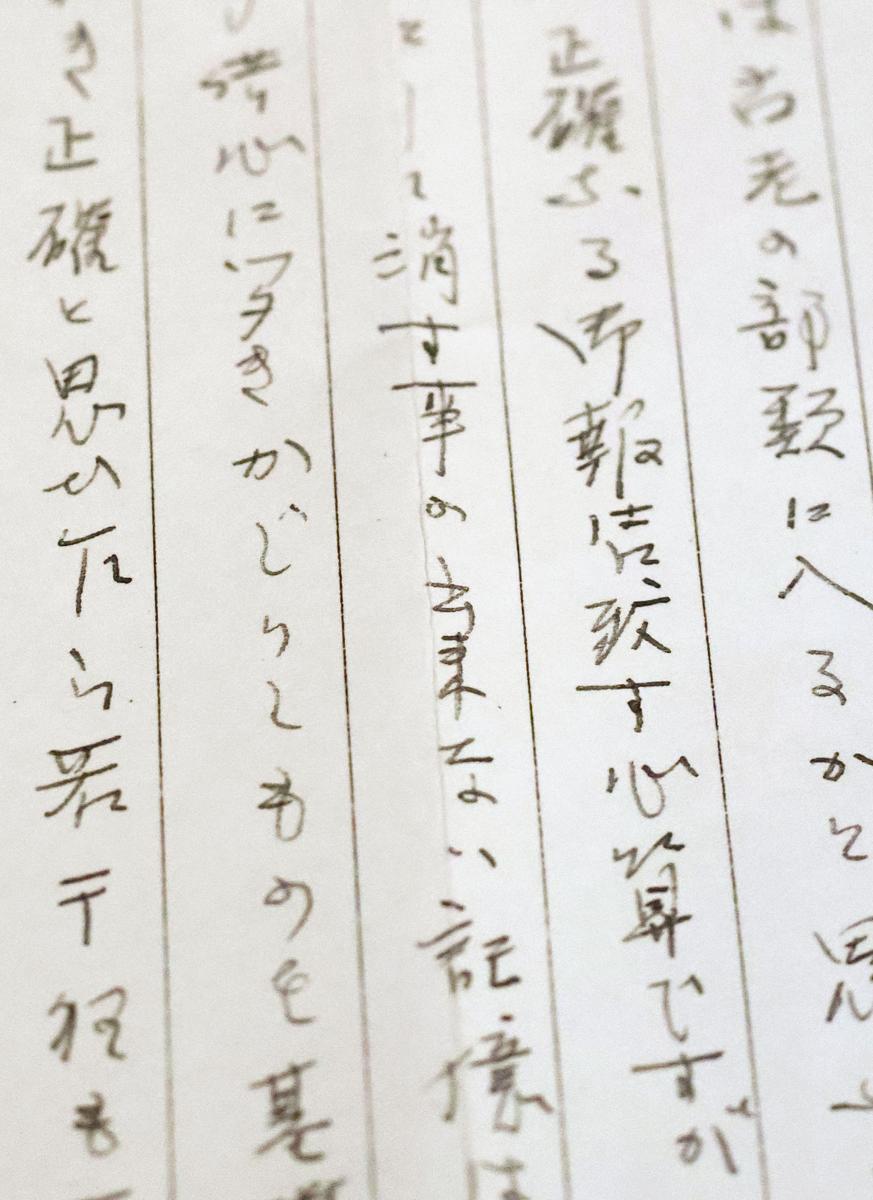 は古老の部類に入るかと思ふ
正確なる御報告致す心算ですが
として消す事の出来ない記憶は
心にタきかじりしものを基
き正確と思ひたら若干狂も